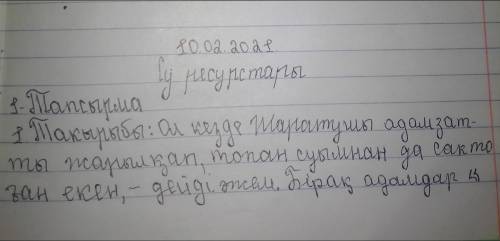 10.02.2021
Су ресурстары
1-Тапсырма
1 Тақырыбы: Ол кезде Жаратушы адамзат-
ты жарылқап, топан суымнан да сақта
ған екен, - дейді әжем. Бірақ адамдар